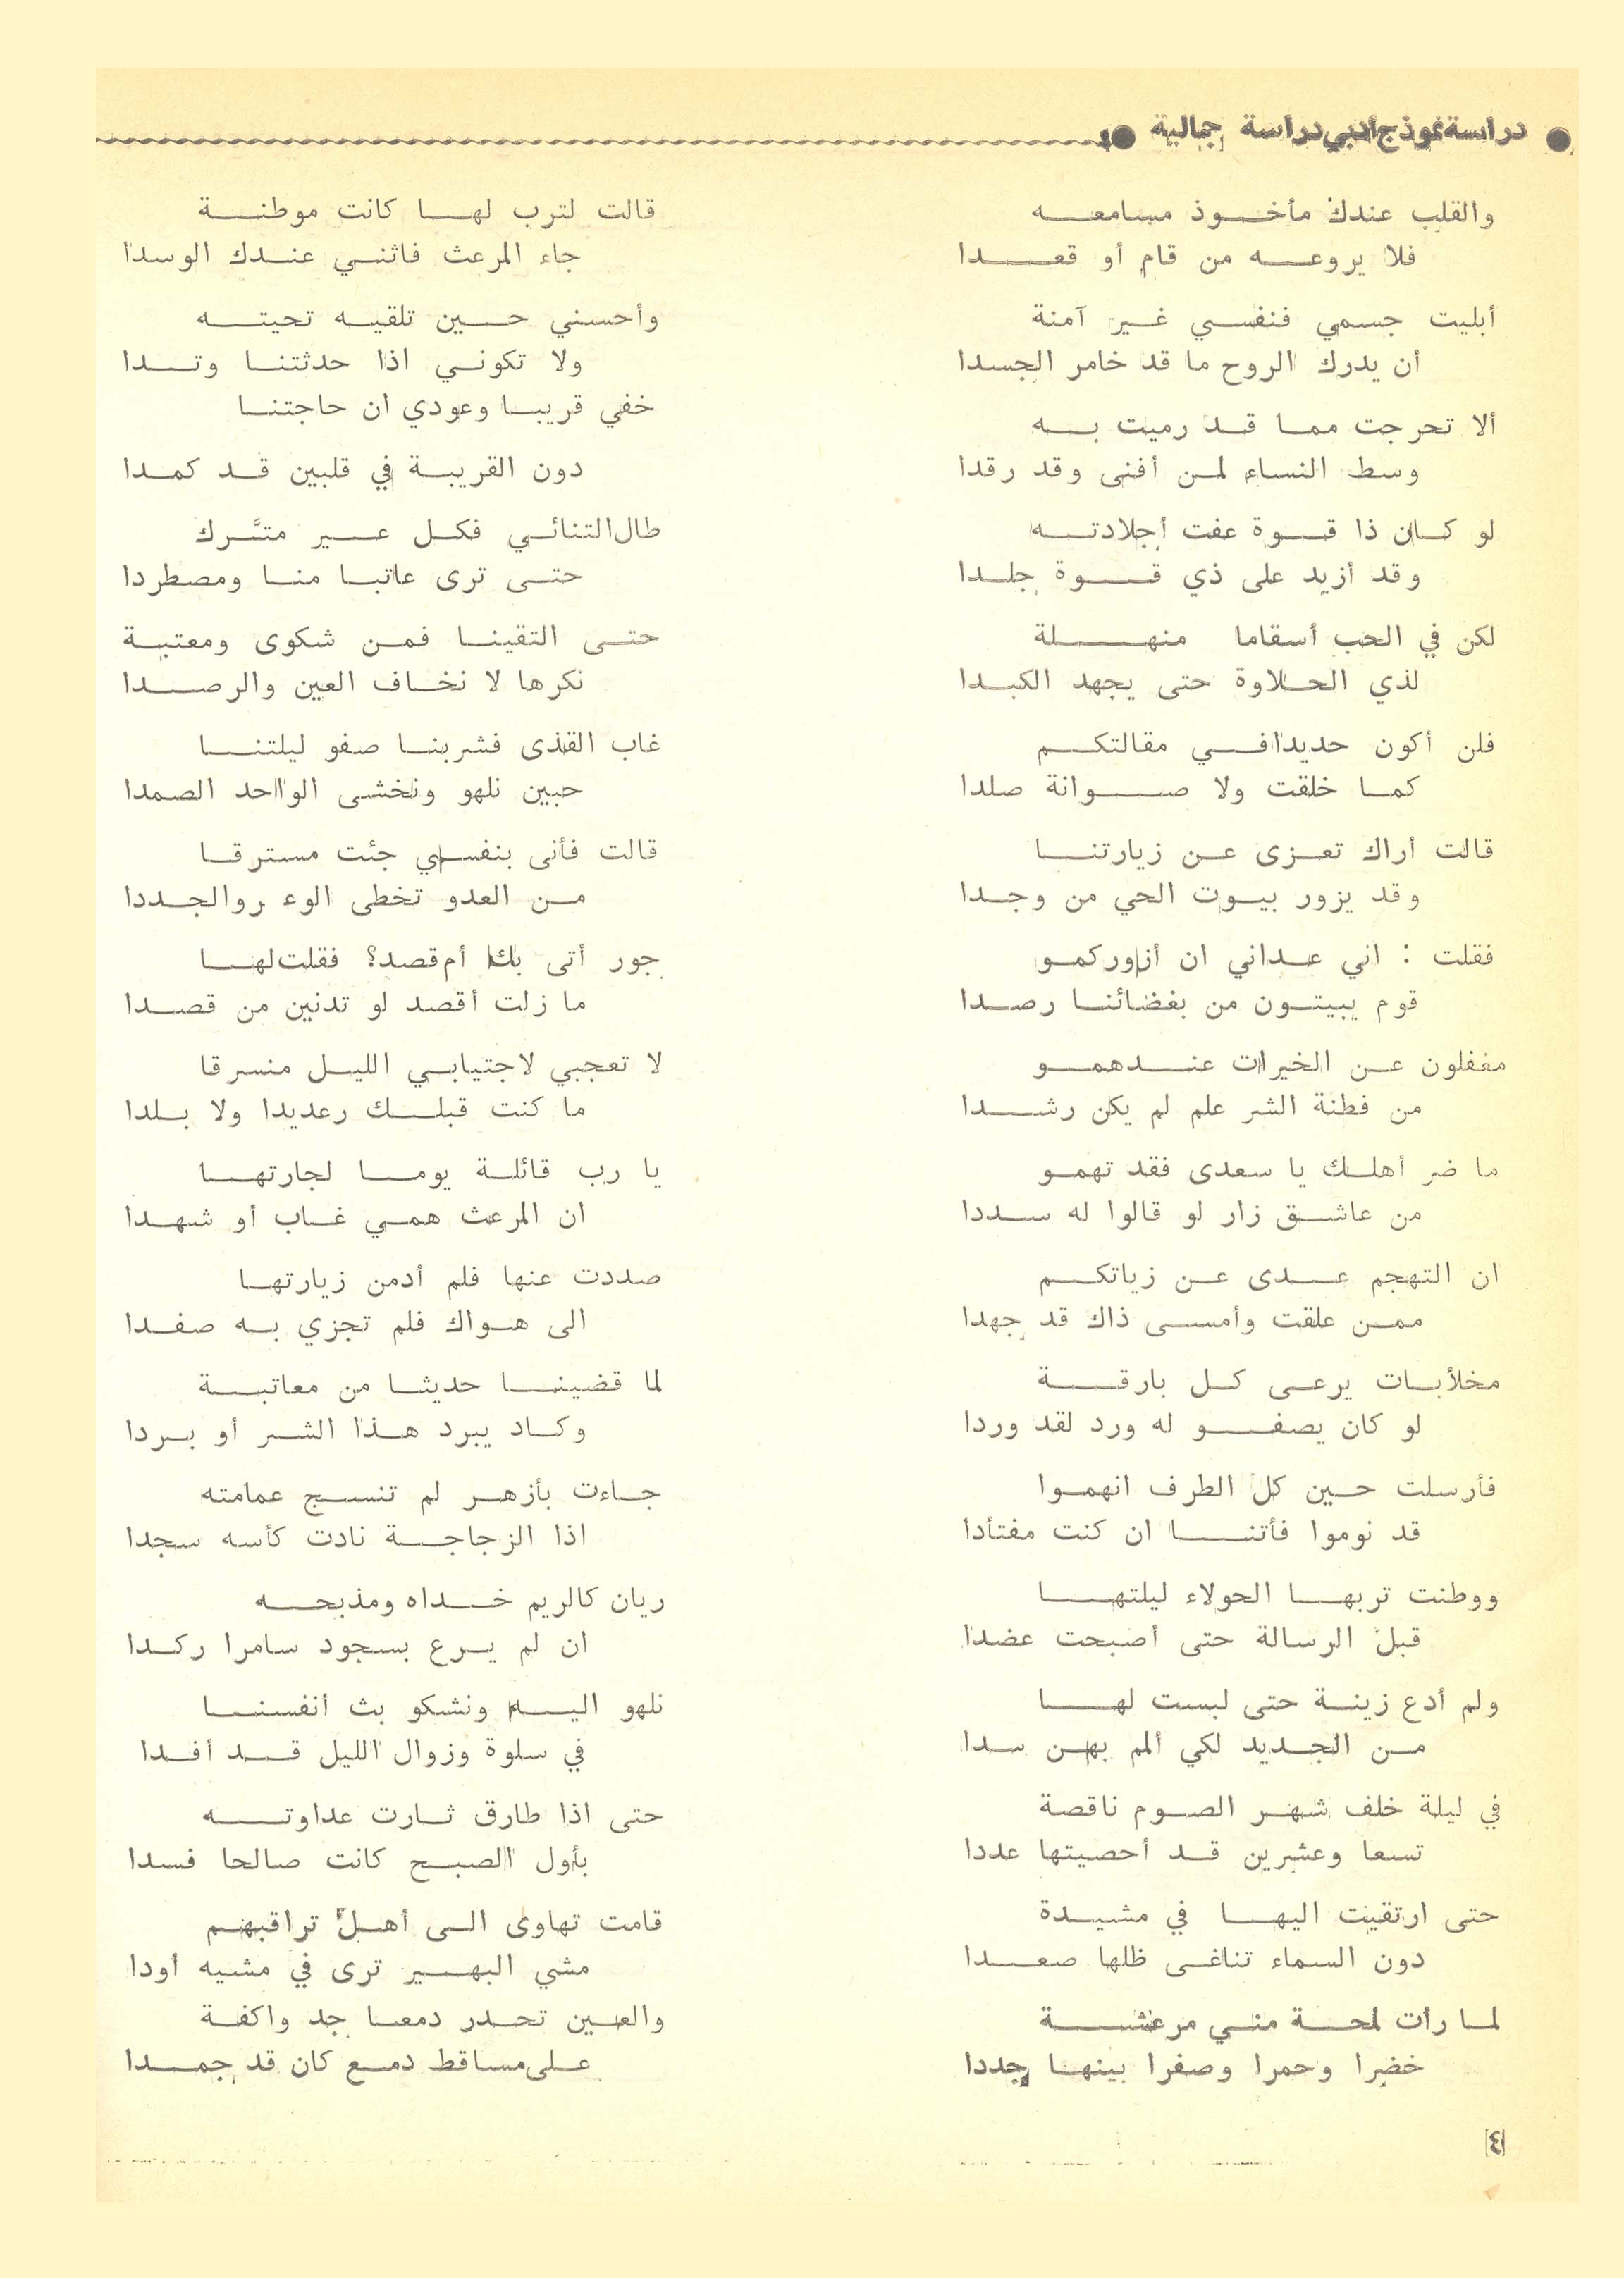 دراسة نموذج أدبي دراسة جمالية
والقلب عندك مأخوذ مسامعه
فلا يروعه من قام أو قعدا
أبليت جسمي فنفسي غير آمنة
أن يدرك الروح ما قد خامر الجسدا
ألا تحرجت مما قد رميت به
وسط النساء لمن أفنى وقد رقدا
لو كان ذا قوة عفت أجلادته
وقد أزيد على ذي قوة جلدا
لكن في الحب أسقاما منهلة
لذي الحلاوة حتى يجهد الكبدا
فلن أكون حديدا في مقالتكم
كما خلقت ولا صوانة صلدا
قالت أراك تعزى عن زيارتنا
وقد يزور بيوت الحي من وجدا
فقلت : اني عداني ان أزوركمو
قوم يبيتون من بغضائنا رصدا
مغفلون عن الخيرات عندهمو
من فطنة الشر علم لم يكن رشدا
ما ضر أهلك يا سعدى فقد تهمو
من عاشق زار لو قالوا له سددا
ان التهجم عدى عن زياتكم
ممن علقت وأمسى ذاك قد جهدا
مخلأبات يرعى كل بارقة
لو كان يصفو له ورد لقد وردا
فأرسلت حين كل الطرف انهموا
قد نوموا فأتنا ان كنت مفتأدا
ووطنت تربها الحولاء ليلتها
قبل الرسالة حتى أصبحت عضدا
ولم أدع زينة حتى لبست لها
من الجديد لكي ألم بهن سدا
في ليلة خلف شهر الصوم ناقصة
تسعا وعشرين قد أحصيتها عددا
حتى ارتقيت اليها في مشيدة
دون السماء تناغى ظلها صعدا
لما رأت لمحة مني مرعشة
خضرا وحمرا وصفرا بينها جددا
قالت لترب لها كانت موطنة
جاء المرعث فاثني عندك الوسدا
وأحسني حين تلقيه تحيته
ولا تكوني اذا حدثتنا وتدا
خفي قريبا وعودي ان حاجتنا
دون القريبة في قلبين قد كمدا
طال التنائي فكل عير متَّرك
حتى ترى عاتبا منا ومصطردا
حتى التقينا فمن شكوى ومعتبة
نكرها لا نخاف العين والرصدا
غاب القذى فشربنا صفو ليلتنا
حبين نلهو ونخشى الواحد الصمدا
قالت فأنى بنفسي جئت مسترقا
من العدو تخطى الوعر والجددا
جور أتى بك أم قصد؟ فقلت لها
ما زلت أقصد لو تدنين من قصدا
لا تعجبي لاجتيابي الليل منسرقا
ما كنت قبلك رعديدا ولا بلدا
يا رب قائلة يوما لجارتها
ان المرعث همي غاب أو شهدا
صددت عنها فلم أدمن زيارتها
الى هواك فلم تجزي به صفدا
لما قضينا حديثا من معاتبة
وكاد يبرد هذا الشر أو بردا
جاءت بأزهر لم تنسج عمامته
اذا الزجاجة نادت كأسه سجدا
ريان كالريم خداه ومذبحه
ان لم يرع بسجود سامرا ركدا
نلهو اليه ونشكو بث أنفسنا
في سلوة وزوال الليل قد أفدا
حتى اذا طارق ثارت عداوته
بأول الصبح كانت صالحا فسدا
قامت تهاوى الى أهل تراقبهم
مشي البهير ترى في مشيه أودا
والعين تحدر دمعا جد واكفة
على مساقط دمع كان قد جمدا